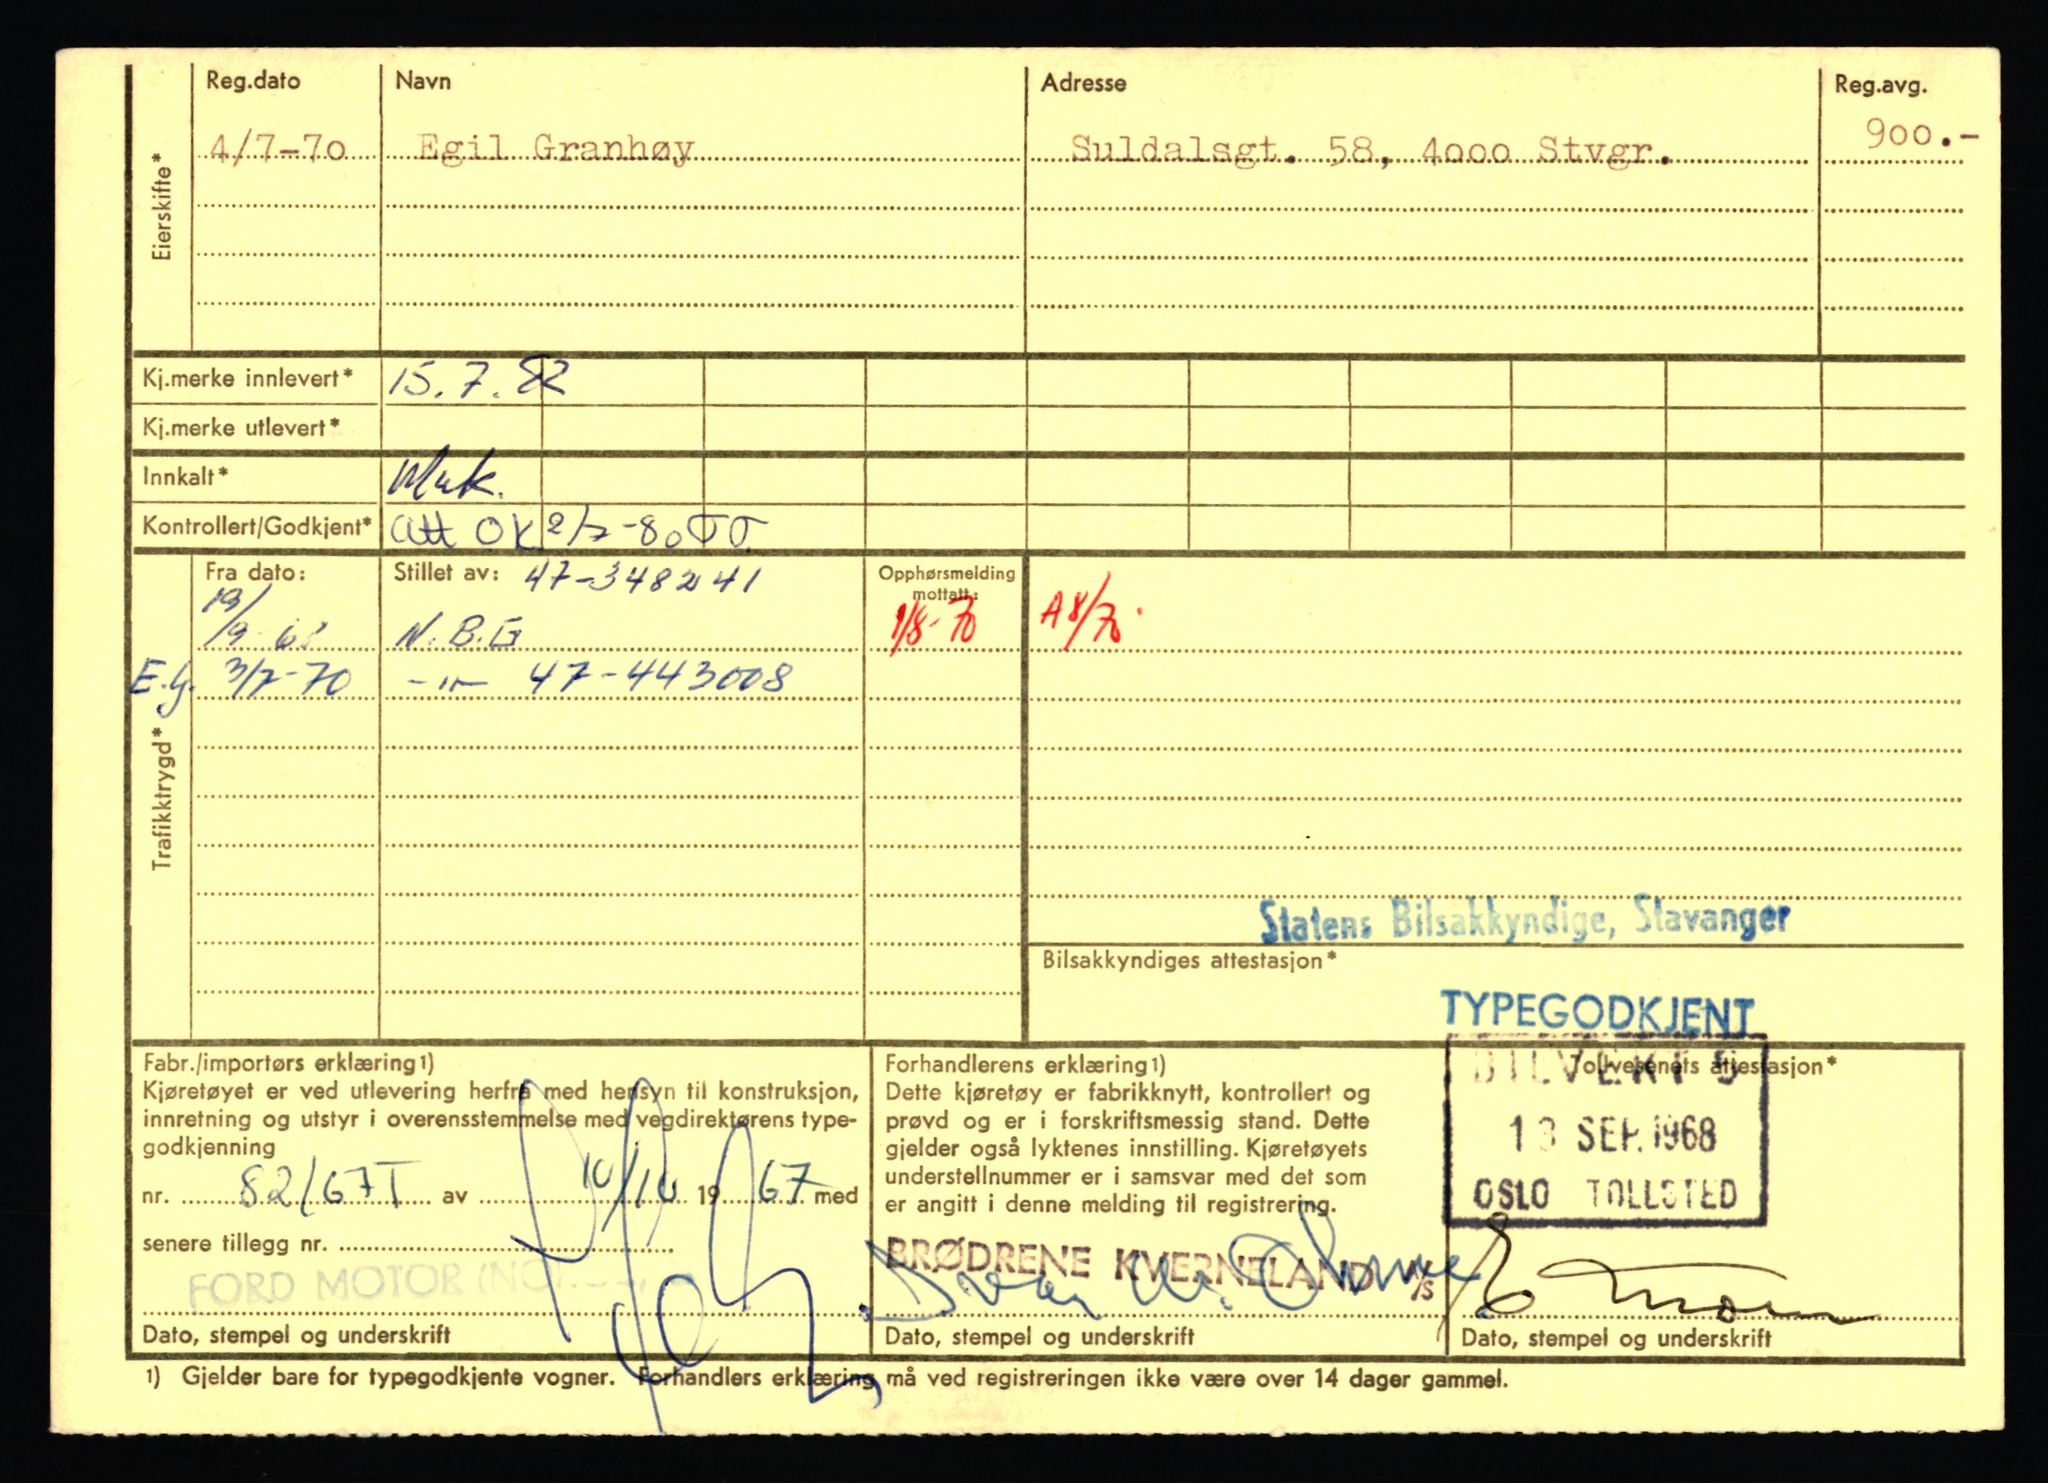 Reg.dato Navn Adresse Reg.avg.
Eierskifte*
4/7-70 Egil Granhøy Suldalsgt. 58, 4000 Stvgr. 900.-
Kj.merke innlevert* 15.7.82
Kj.merke utlevert*
Innkalt*
Kontrollert/Godkjent* att OK 2/7-80
Trafikktrygd*
Fra dato: Stillet av: 47-348241 Opphørsmelding
mottatt:
19/
/9-68 N.B.G 1/8-70 A8/70.
E.G. 3/7-70 -"- 47-443008
Statens Bilsakkyndige, Stavanger
Bilsakkyndiges attestasjon*
TYPEGODKJENT
Fabr./importørs erklæring1)
Kjøretøyet er ved utlevering herfra med hensyn til konstruksjon,
innretning og utstyr i overensstemmelse med vegdirektørens type-
godkjenning
nr. 82/67T av 10/10 1967 med
senere tillegg nr.
FORD MOTOR
Dato, stempel og underskrift
Forhandlerens erklæring1)
Dette kjøretøy er fabrikknytt, kontrollert og
prøvd og er i forskriftsmessig stand. Dette
gjelder også lyktenes innstilling. Kjøretøyets
understellnummer er i samsvar med det som
er angitt i denne melding til registrering.
BRØDRENE KVERNELAND A/S
Dato, stempel og underskrift
Tollvesenets attestasjon*
13 SEP. 1968
OSLO TOLLSTED
Dato, stempel og underskrift
1) Gjelder bare for typegodkjente vogner. Forhandlers erklæring må ved registreringen ikke være over 14 dager gammel.